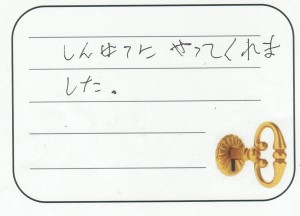 しんせつに やってくれま
した。